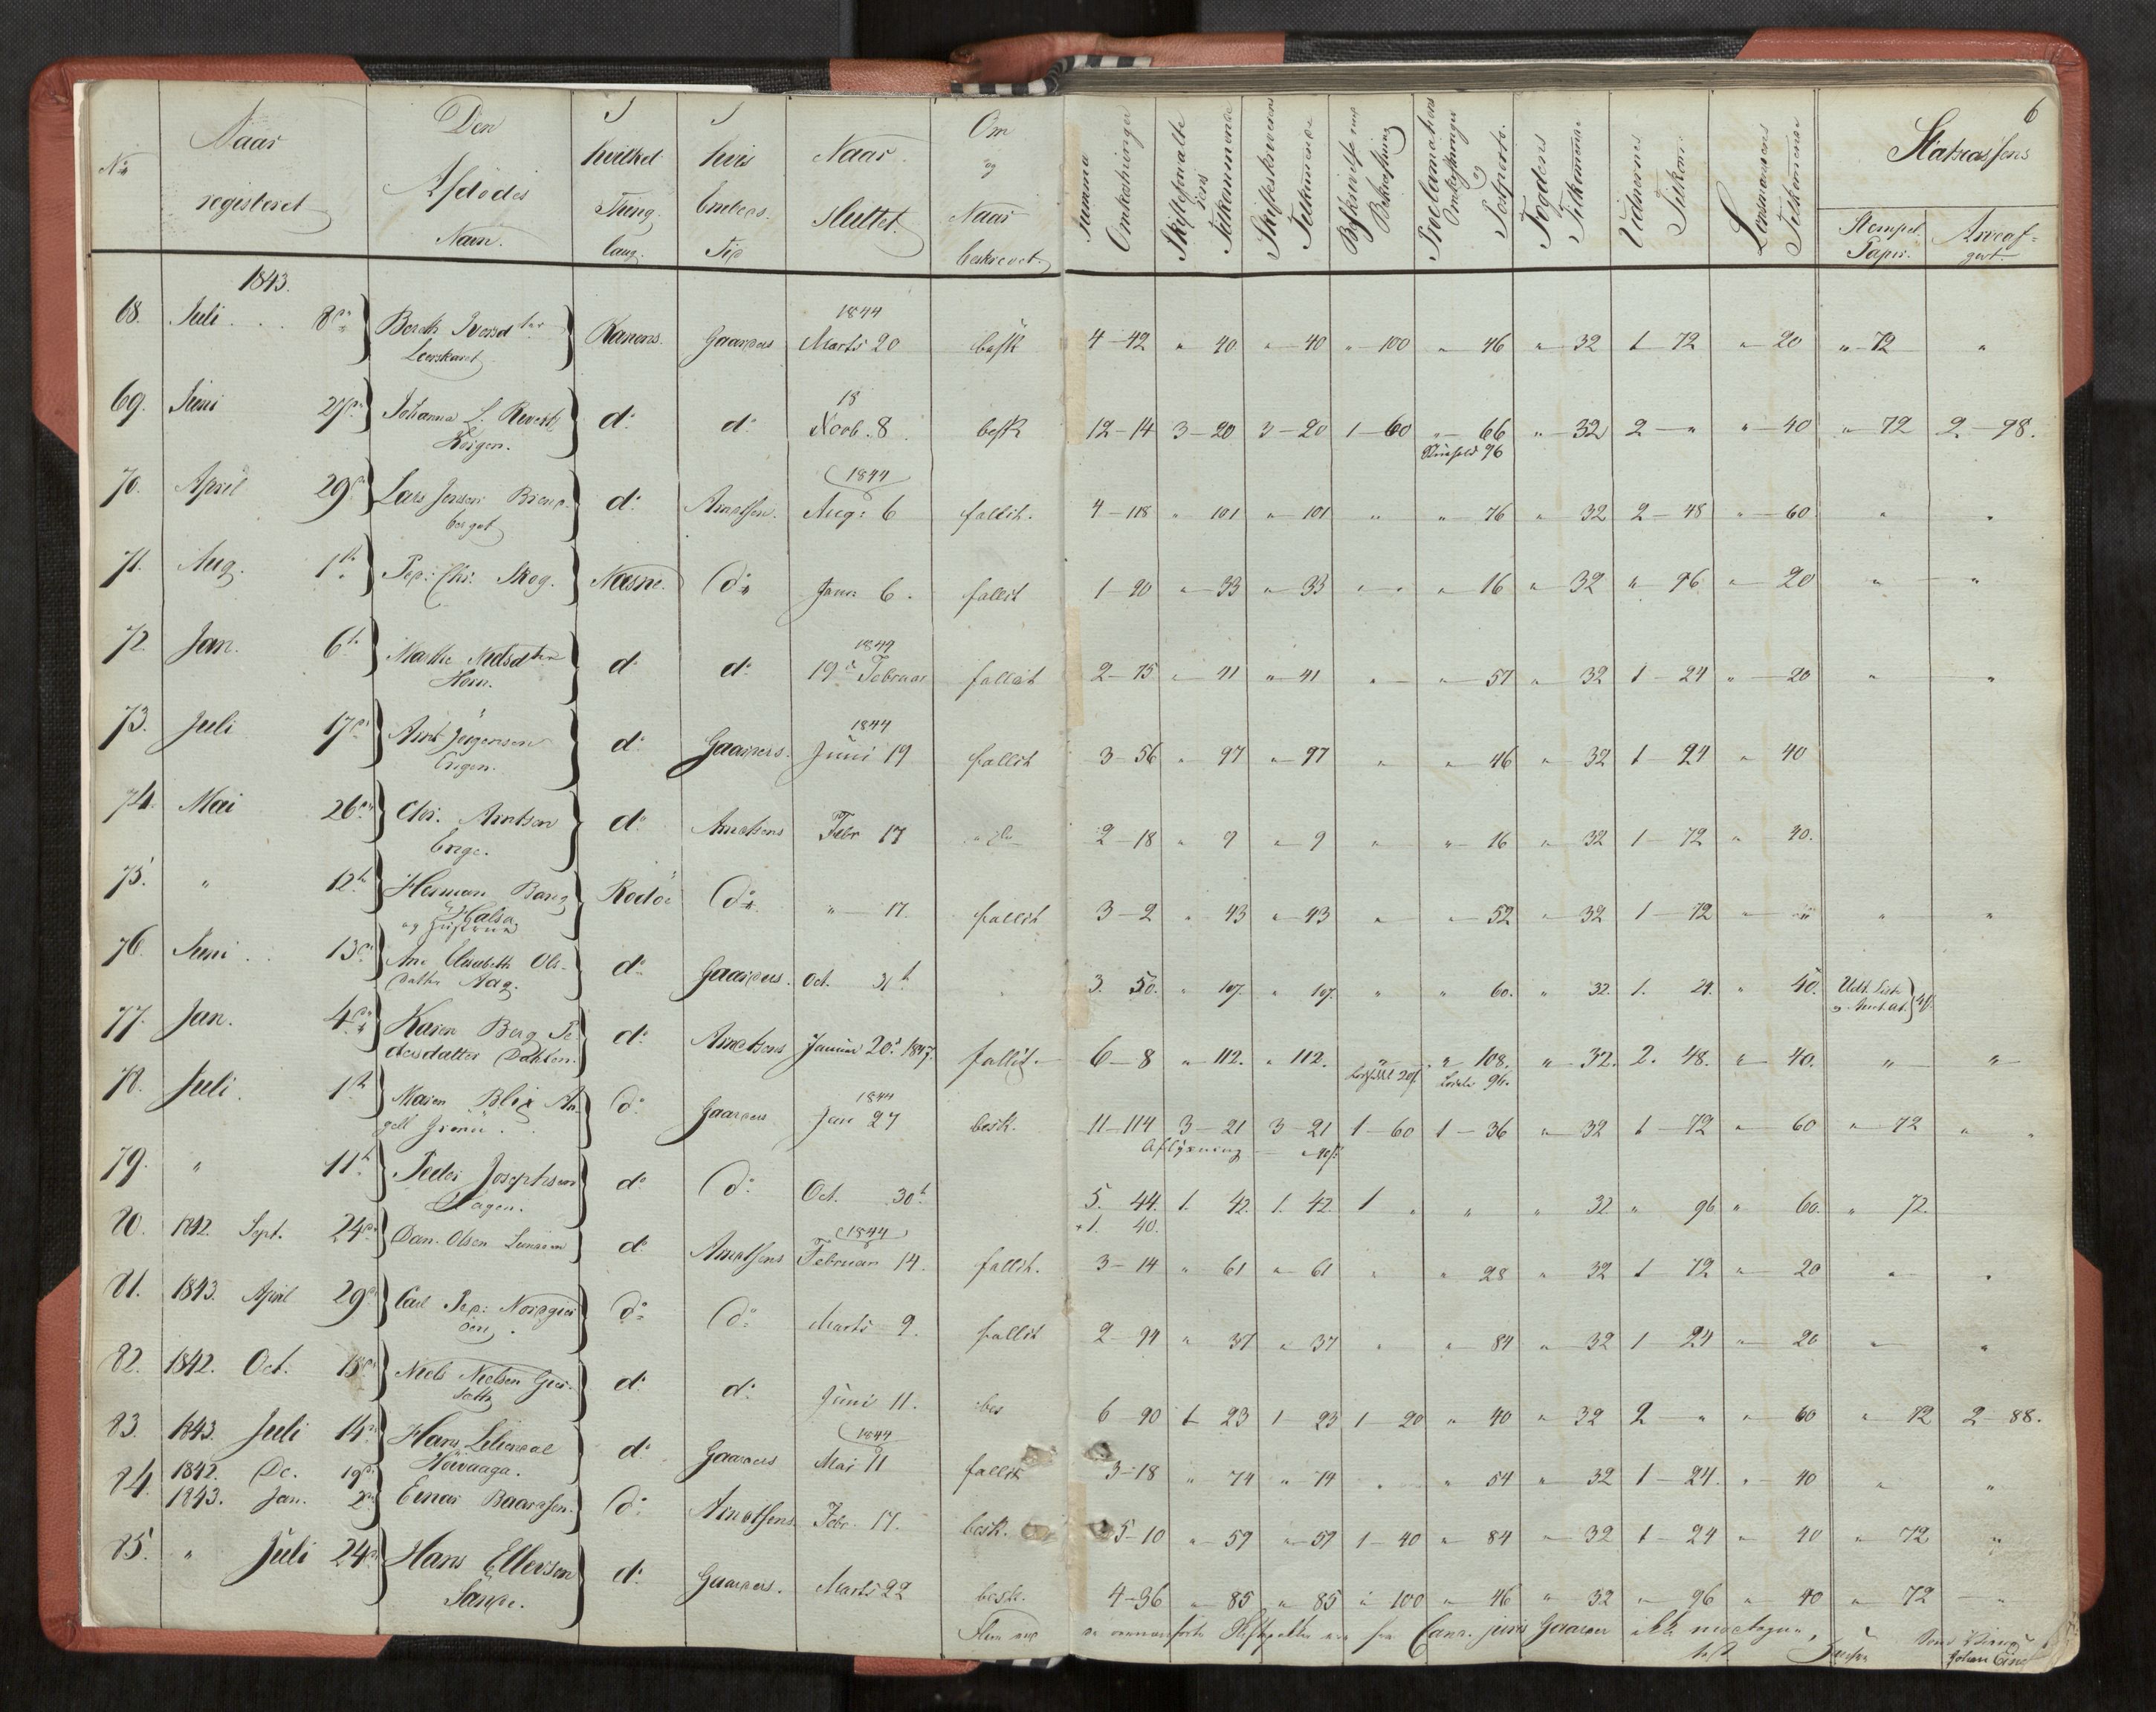 6
No Naar registeret Den Afdödes Navn. I hvilket Thing lang. I hvis Embeds Tid Naar Sluttet Om og Naar beskrevet. Summa Omkostninger Skifteforvalte rens Tilkommende Skifteskriverens Tilkommende Beskrivelse og Bekræftning Proclamations Omkostninger og Postporto. Fogdens Tilkommende Vidnernes Tilkom. Lensmandens Tilkommende Statskassens Stempel Papir. Arveaf- givt.
1843. 1844
68. Juli 8de Berith Iversdtter Ranens. Gaarders Marts 20 besk 4-42 " 40 " 40 " 100 " 46 " 32 1-72 " 20 " 72 "
Leerskaret
18
69. Juni 27de Johanna L. do do Novb. 8 besk 12-14 3-20 3-20 1-60 " 66 " 32 2-" " 40 " 72 2-98.
96
1844
70. April 29de Lars Jensen Brend- do Arnetsen. Aug: 6 fallit. 4-118 " 101 " 101 " " 76 " 32 2-48 " 60 " "
berget
71. Aug. 1ste Ped: Chr: Skog. Næsne. do Janr 6. fallit 1-90 " 33 " 33 " " 16 " 32 " 96 " 20 " "
1844
72. Jan. 6te Marthe Nielsdtter do do 19de Februar fallit 2-75 " 41 " 41 " " 57 " 32 1-24 " 20 " "
Horn.
1844
73. Juli 17de Arnt Jörgensen do Gaarders. Juni 19 fallit 3-56 " 97 " 97 " " 46 " 32 1-24 " 40
Engen.
74. Mai 26de Chr. Arntsen do Arnetsens Febr 17 do 2-18 " 9 " 9 " " 16 " 32 1-72 " 40.
Enge.
75. " 12te Herman Bang Rodöe do " 17. fallit 3-2 " 43 " 43 " " 52 " 32 1-72 " " " "
Halsa
og Hustrue
76. Juni 13de Ane Elisabeth Ols- do Gaarders. Oct. 31te 3. 50. " 107. " 107. " " 60. " 32. 1. 24. " 40.
datter Aag.
77. Jan. 4de Karen Berg Pe- do Arnetsens Januar 20de 1847. fallit. 6-8 " 112. " 112. " 108. " 32. 2. 48. " 40. " "
dersdatter Dahlen. 96.
1844
78. Juli 1ste Maren Blix An- do Gaarders Jan 27 besk. 11-114 3-21 3-21 1-60 1-36 " 32 1-72 " 60 " 72 " "
gell Grönö. Aflysning
79. " 11te Peder Josephsen do do Oct. 30te 5. 44. 1. 42. 1. 42. 1 " " " 32 " 96 " 60. " 72.
Hagen. +1. 40.
1844
80. 1842. Sept. 24de Dan. Olsen do Arnetsens Februar 14. fallit. 3-14 " 61 " 61 " " 28 " 32 1-72 " 20 " "
81. 1843. April 29de Carl Ped: do do Marts 9. fallit 2-94 " 37 " 37 " " 84 " 32 1-24 " 20 " "
82. 1842. Oct. 18de Niels Nielsen do do Juni 11. bes 6-90 1-23 1-23 1-20 " 40 " 32 2-" " 60 " 72 2-88.
1844
83. 1843. Juli 14de Hans Liliendal do Gaarders Mai 11 fallit 3-18 " 74 " 74 " " 54 " 32 1-24. " 40 " "
84. 1842. De. 19de
1843. Jan. 2den Einar Baardsen. do Arnetsens Febr. 17. besk. 5-10 " 57 " 57 1-40 " 84 " 32 1-24 " 40 " 72 "
85. " Juli 24de Hans Ellersen do Gaarders. Marts 22 besk. 4-36 " 85 " 85 " 100 " 46 " 32 " 96 " 40 " 72 "
Cand. juris Gaarder ikke modtagne,